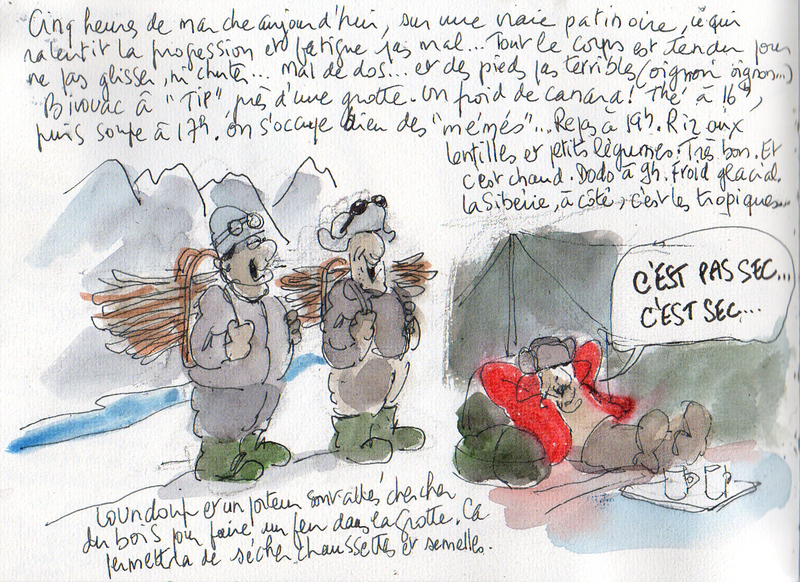 Cinq heures de marche aujourd'hui, sur une vraie patinoire, ce qui
ralentit la progression et fatigue pas mal... Tout le corps est tendu pour
ne pas glisser, ni chuter... mal de dos... et des pieds pas terribles (oignon oignon...)
Bivouac à "TIP" près d'une grotte. Un froid de canard! Thé à 16h,
puis soupe à 17h. On s'occupe bien des "mémés"... Repas à 19h. Riz aux
lentilles et petits légumes. Très bon. Et
c'est chaud. Dodo à 9h. Froid glacial.
la Sibérie, à côté, c'est les tropiques...
C'EST PAS SEC...
C'EST SEC...
Loundoup et un porteur sont allés chercher
du bois pour faire un feu dans la grotte. Ca
permettra de sécher chaussettes et semelles.